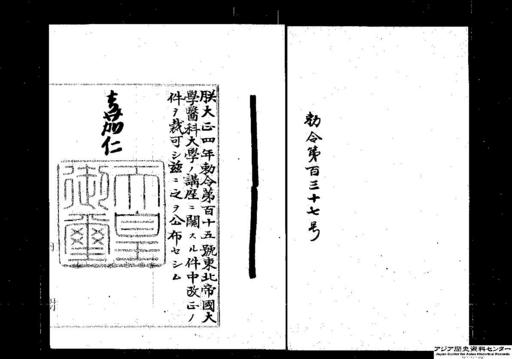 勅令第百三十七号
朕大正四年勅令第百十五號東北帝國大
學醫科大學ノ講座ニ關スル件中改正ノ
件ヲ裁可シ玆ニ之ヲ公布セシム
嘉仁
天皇
御璽
アジア歴史資料センター
Japan Center for Asian Historical Records